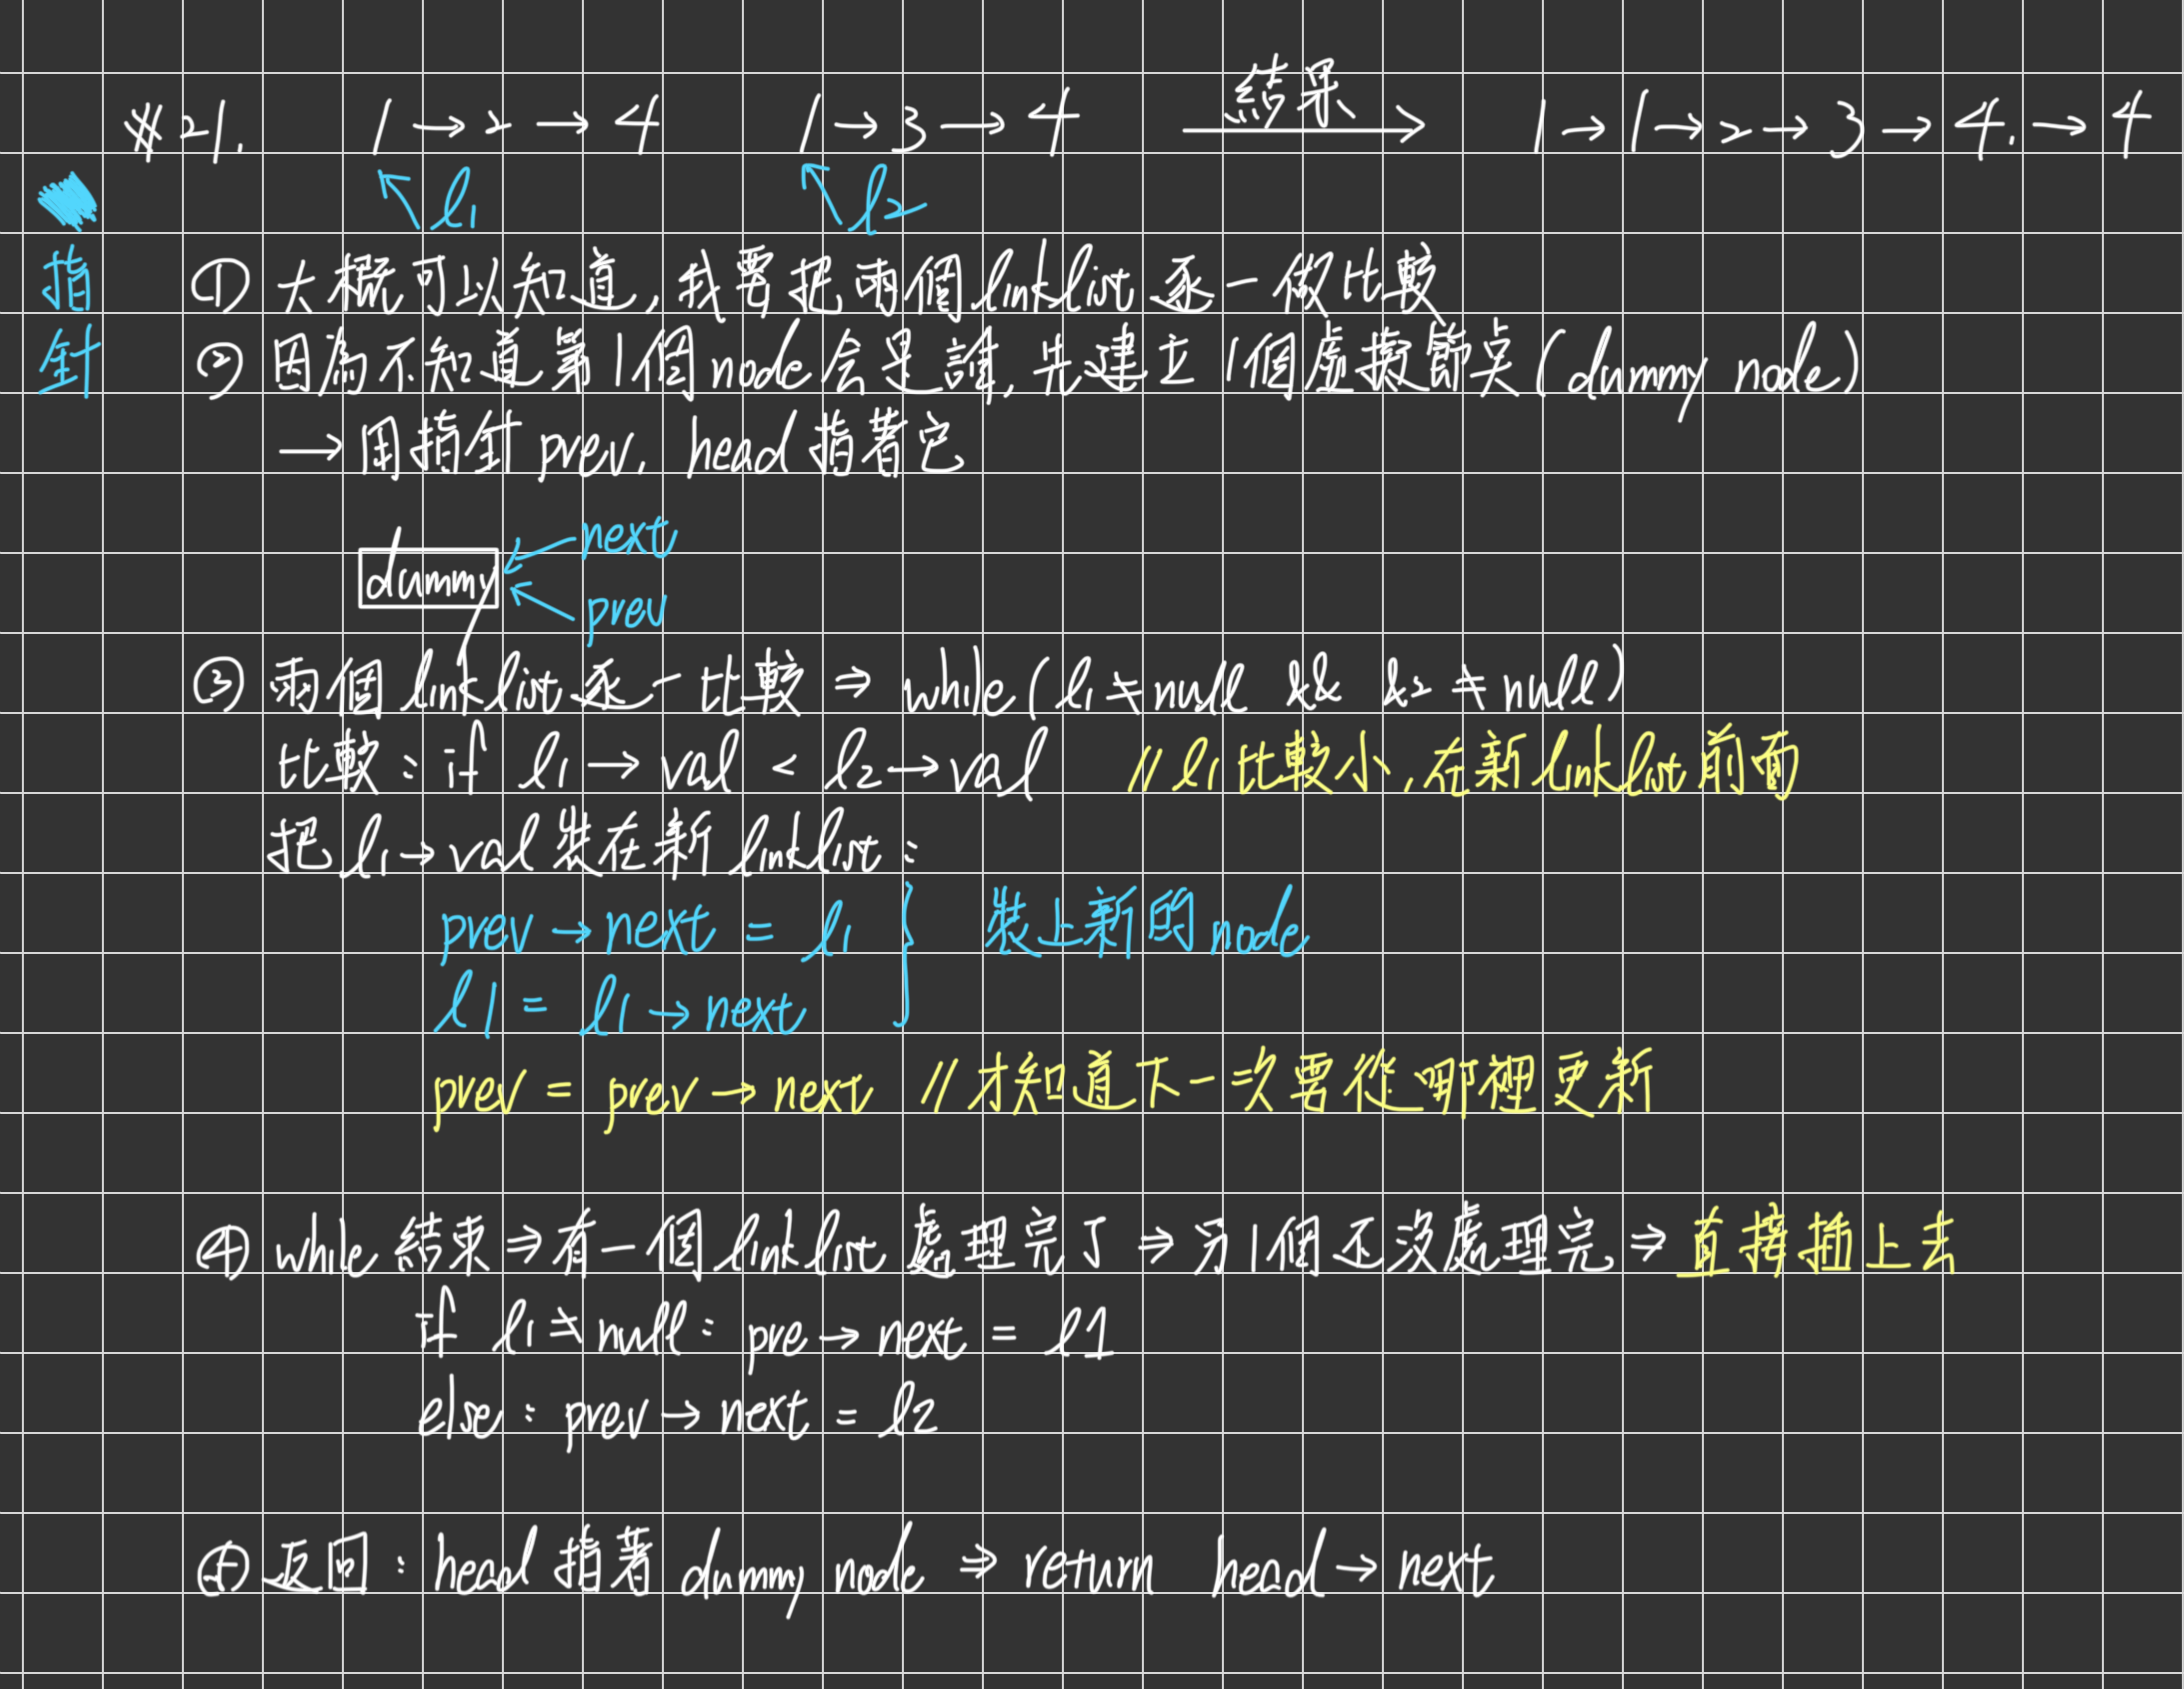 #21. 1→2→4 1→3→4 結果 1→1→2→3→4.→4
l1 l2
指針
① 大概可以知道,我要把兩個linklist逐一做比較
② 因為不知道第1個node会是誰,先建立1個虛擬節点(dummy node)
→用指針prev, head指著它
next
dummy
prev
③ 兩個linklist逐一比較⇒while(l1≠null && l2≠null)
比較:if l1→val < l2→val //l1比較小,在新linklist前面
把l1→val裝在新linklist:
prev→next = l1 } 裝上新的node
l1 = l1→next
prev = prev→next //才知道下一次要從哪裡更新
④ while結束⇒有一個linklist處理完了⇒另1個还没處理完⇒直接插上去
if l1≠null: pre→next = l1
else: prev→next = l2
返回: head指著dummy node ⇒ return head→next